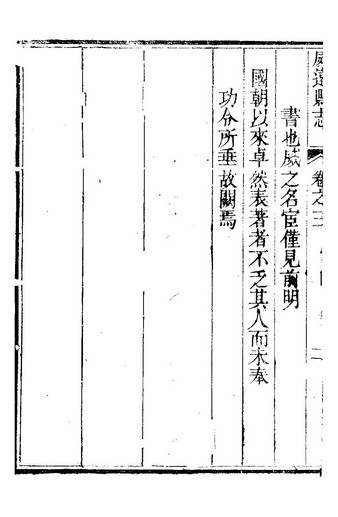 威遠縣志
卷之三
書也威之名宦僅見前明
國朝以來卓然表著者不乏其人而未奉
功令所垂故闕焉